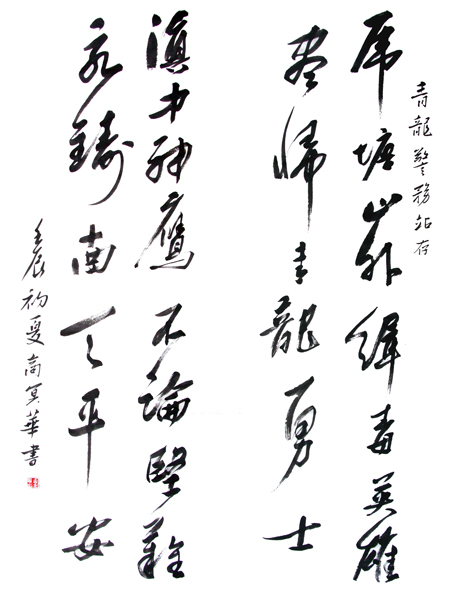 青龍警務站存
虎塘山外緝毒英雄
盡歸青龍勇士
滇中神鷹不論堅難
永鑄南天平安
壬辰初夏高華書